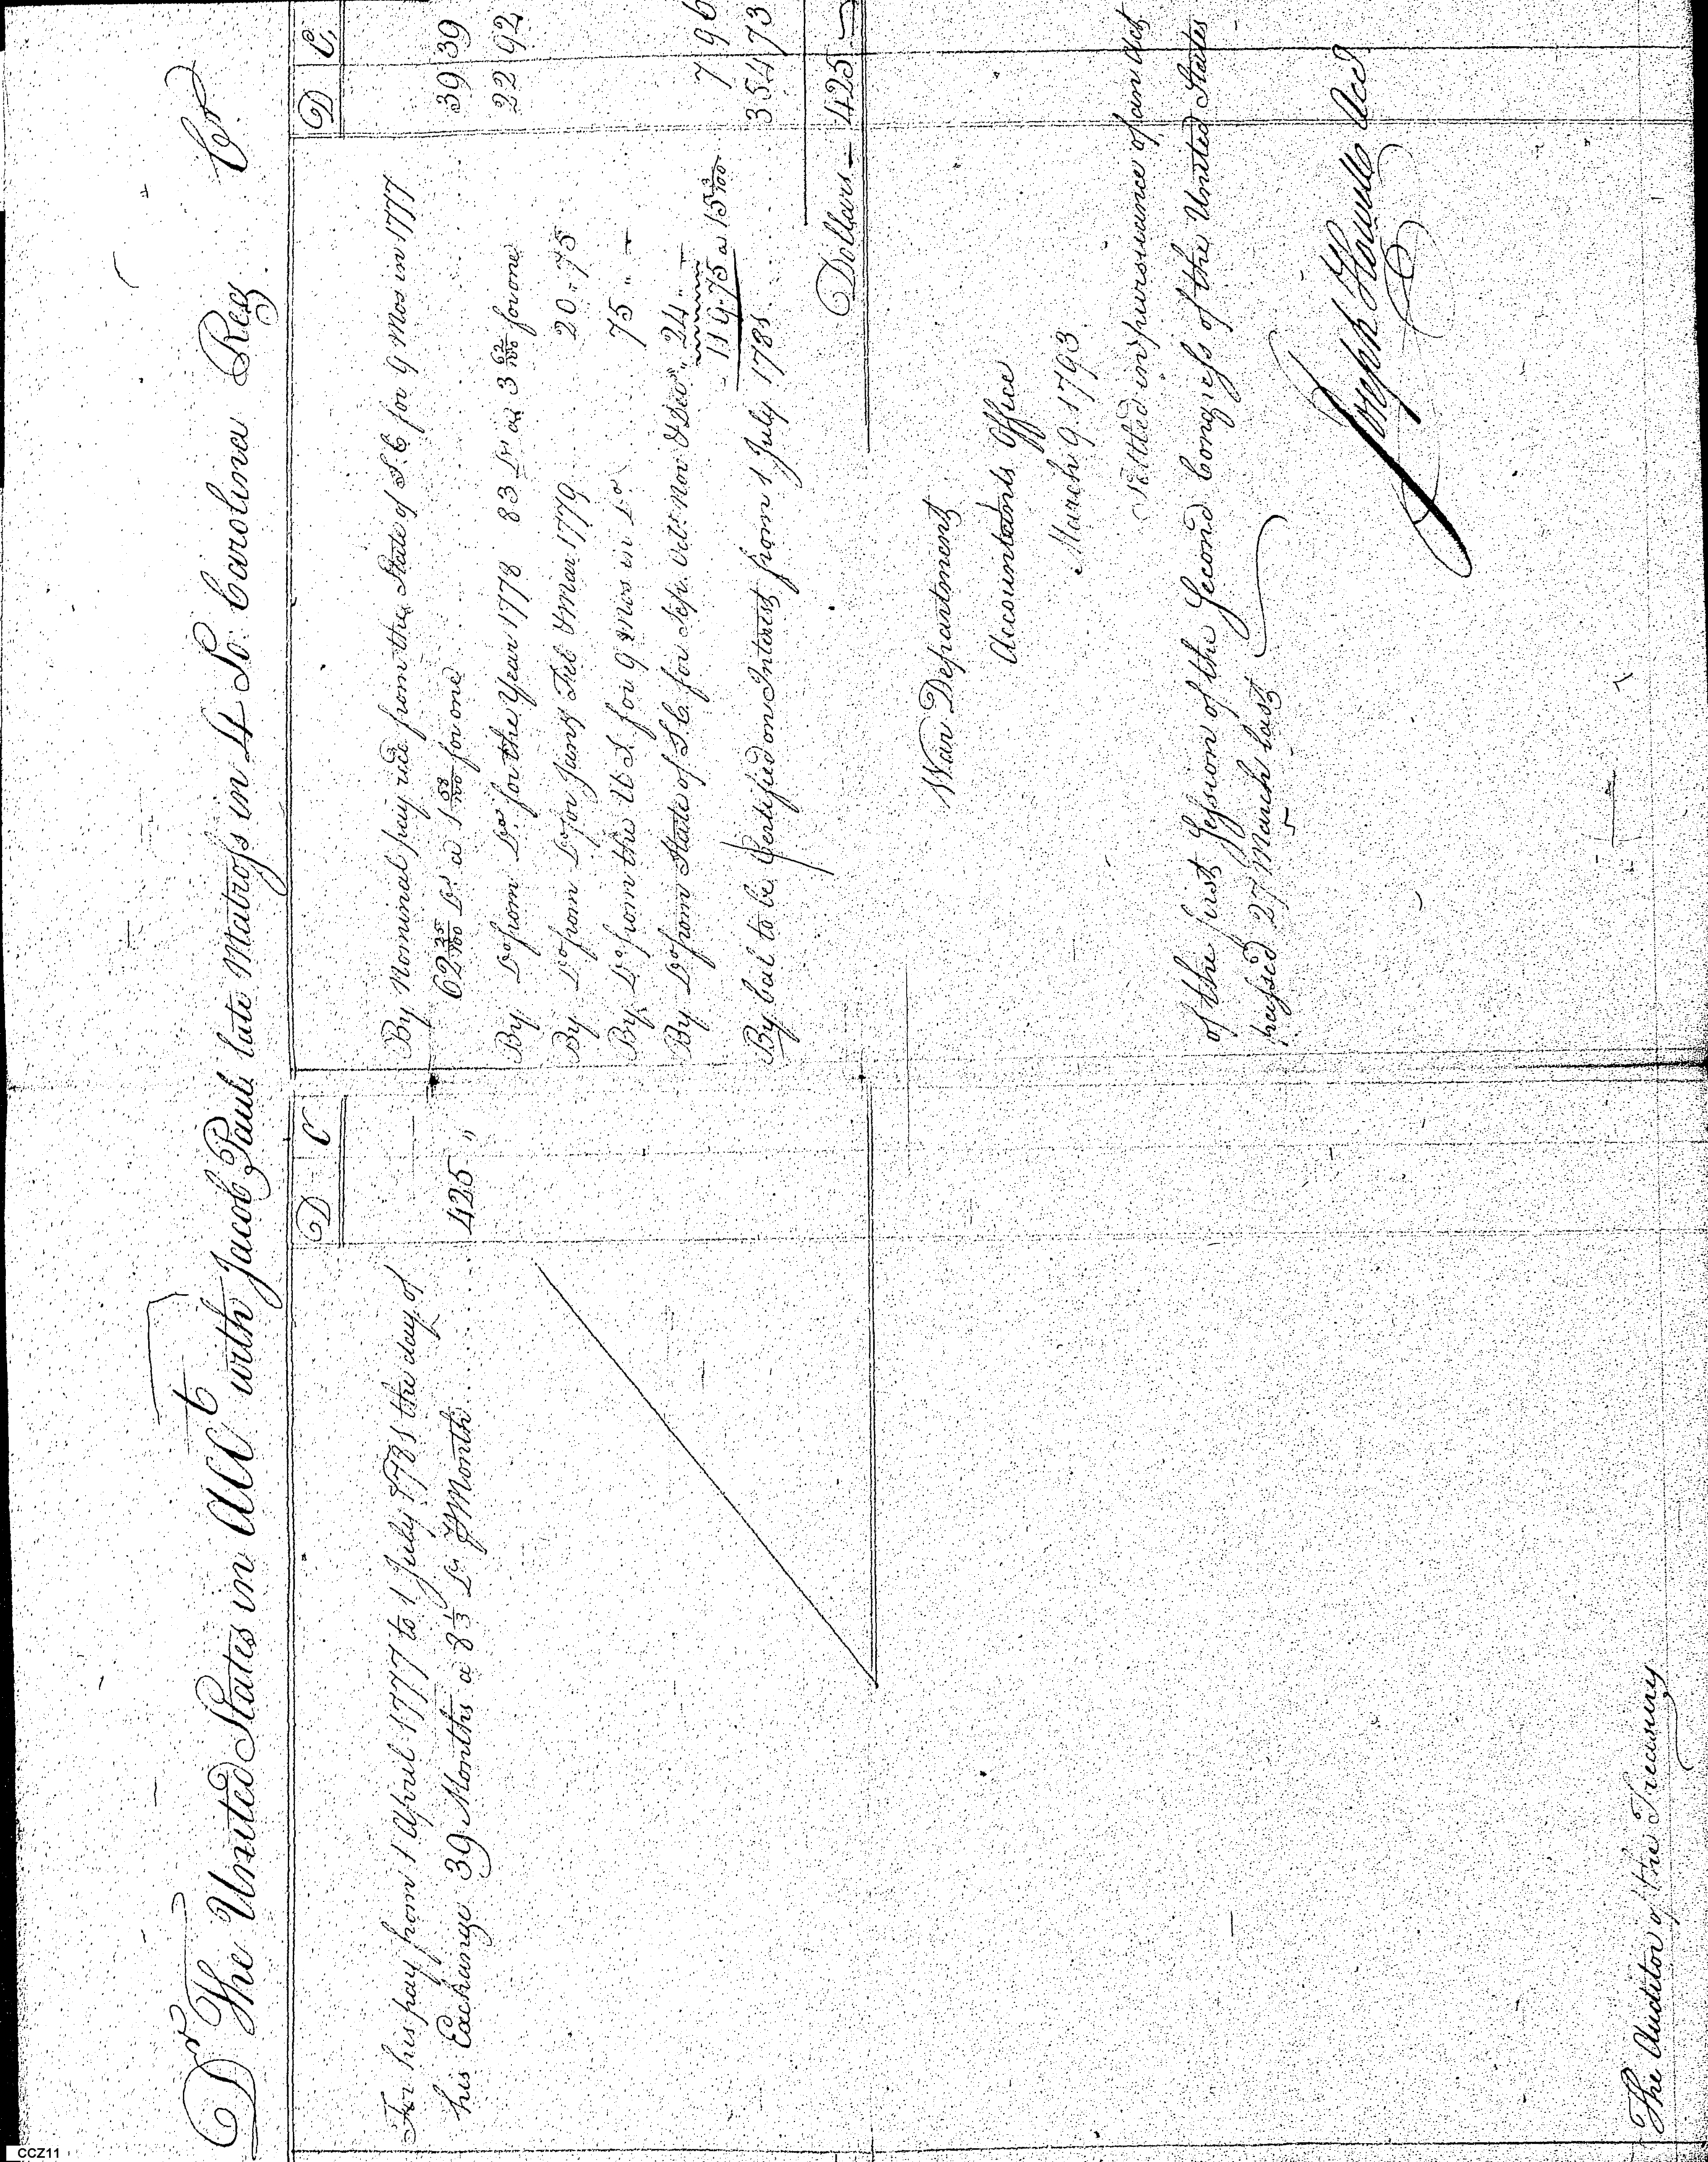 Dr The United States in Acct with Jacob Paul late Matross in 4 So. Carolina Reg. Cr
D C
For his pay from 1 April 1777 to 1 July 1781 the day of
his Exchange 39 Months a 8 1/3 Drs P Month 425 "
D C.
By Nominal pay recd from the State of S.C for 9 Mos in 1777
62 25/100 Drs a 1 58/100 for one 39 39
By Do from Do for the Year 1778 83 Drs at 3 62/100 for one 22 92
By Do from Do for Jany Feb & Mar 1779 20 " 75
By Do from the U S. for 9 Mos in Do 75 " -
By Do from State of S.C. for Sep. Octr Nov & Decr " 24 " -
119.75 a 15 3/100 7 96
By bal to be Certified on Interest from 1 July 1781 354 73
Dollars - 425 -
War Department
Accountants Office
March 9. 1793
Settled in pursuance of an Act
of the first Session of the Second Congress of the United States
passed 27 March last
Joseph Howell Acct
The Auditor of the Treasury
CCZ11